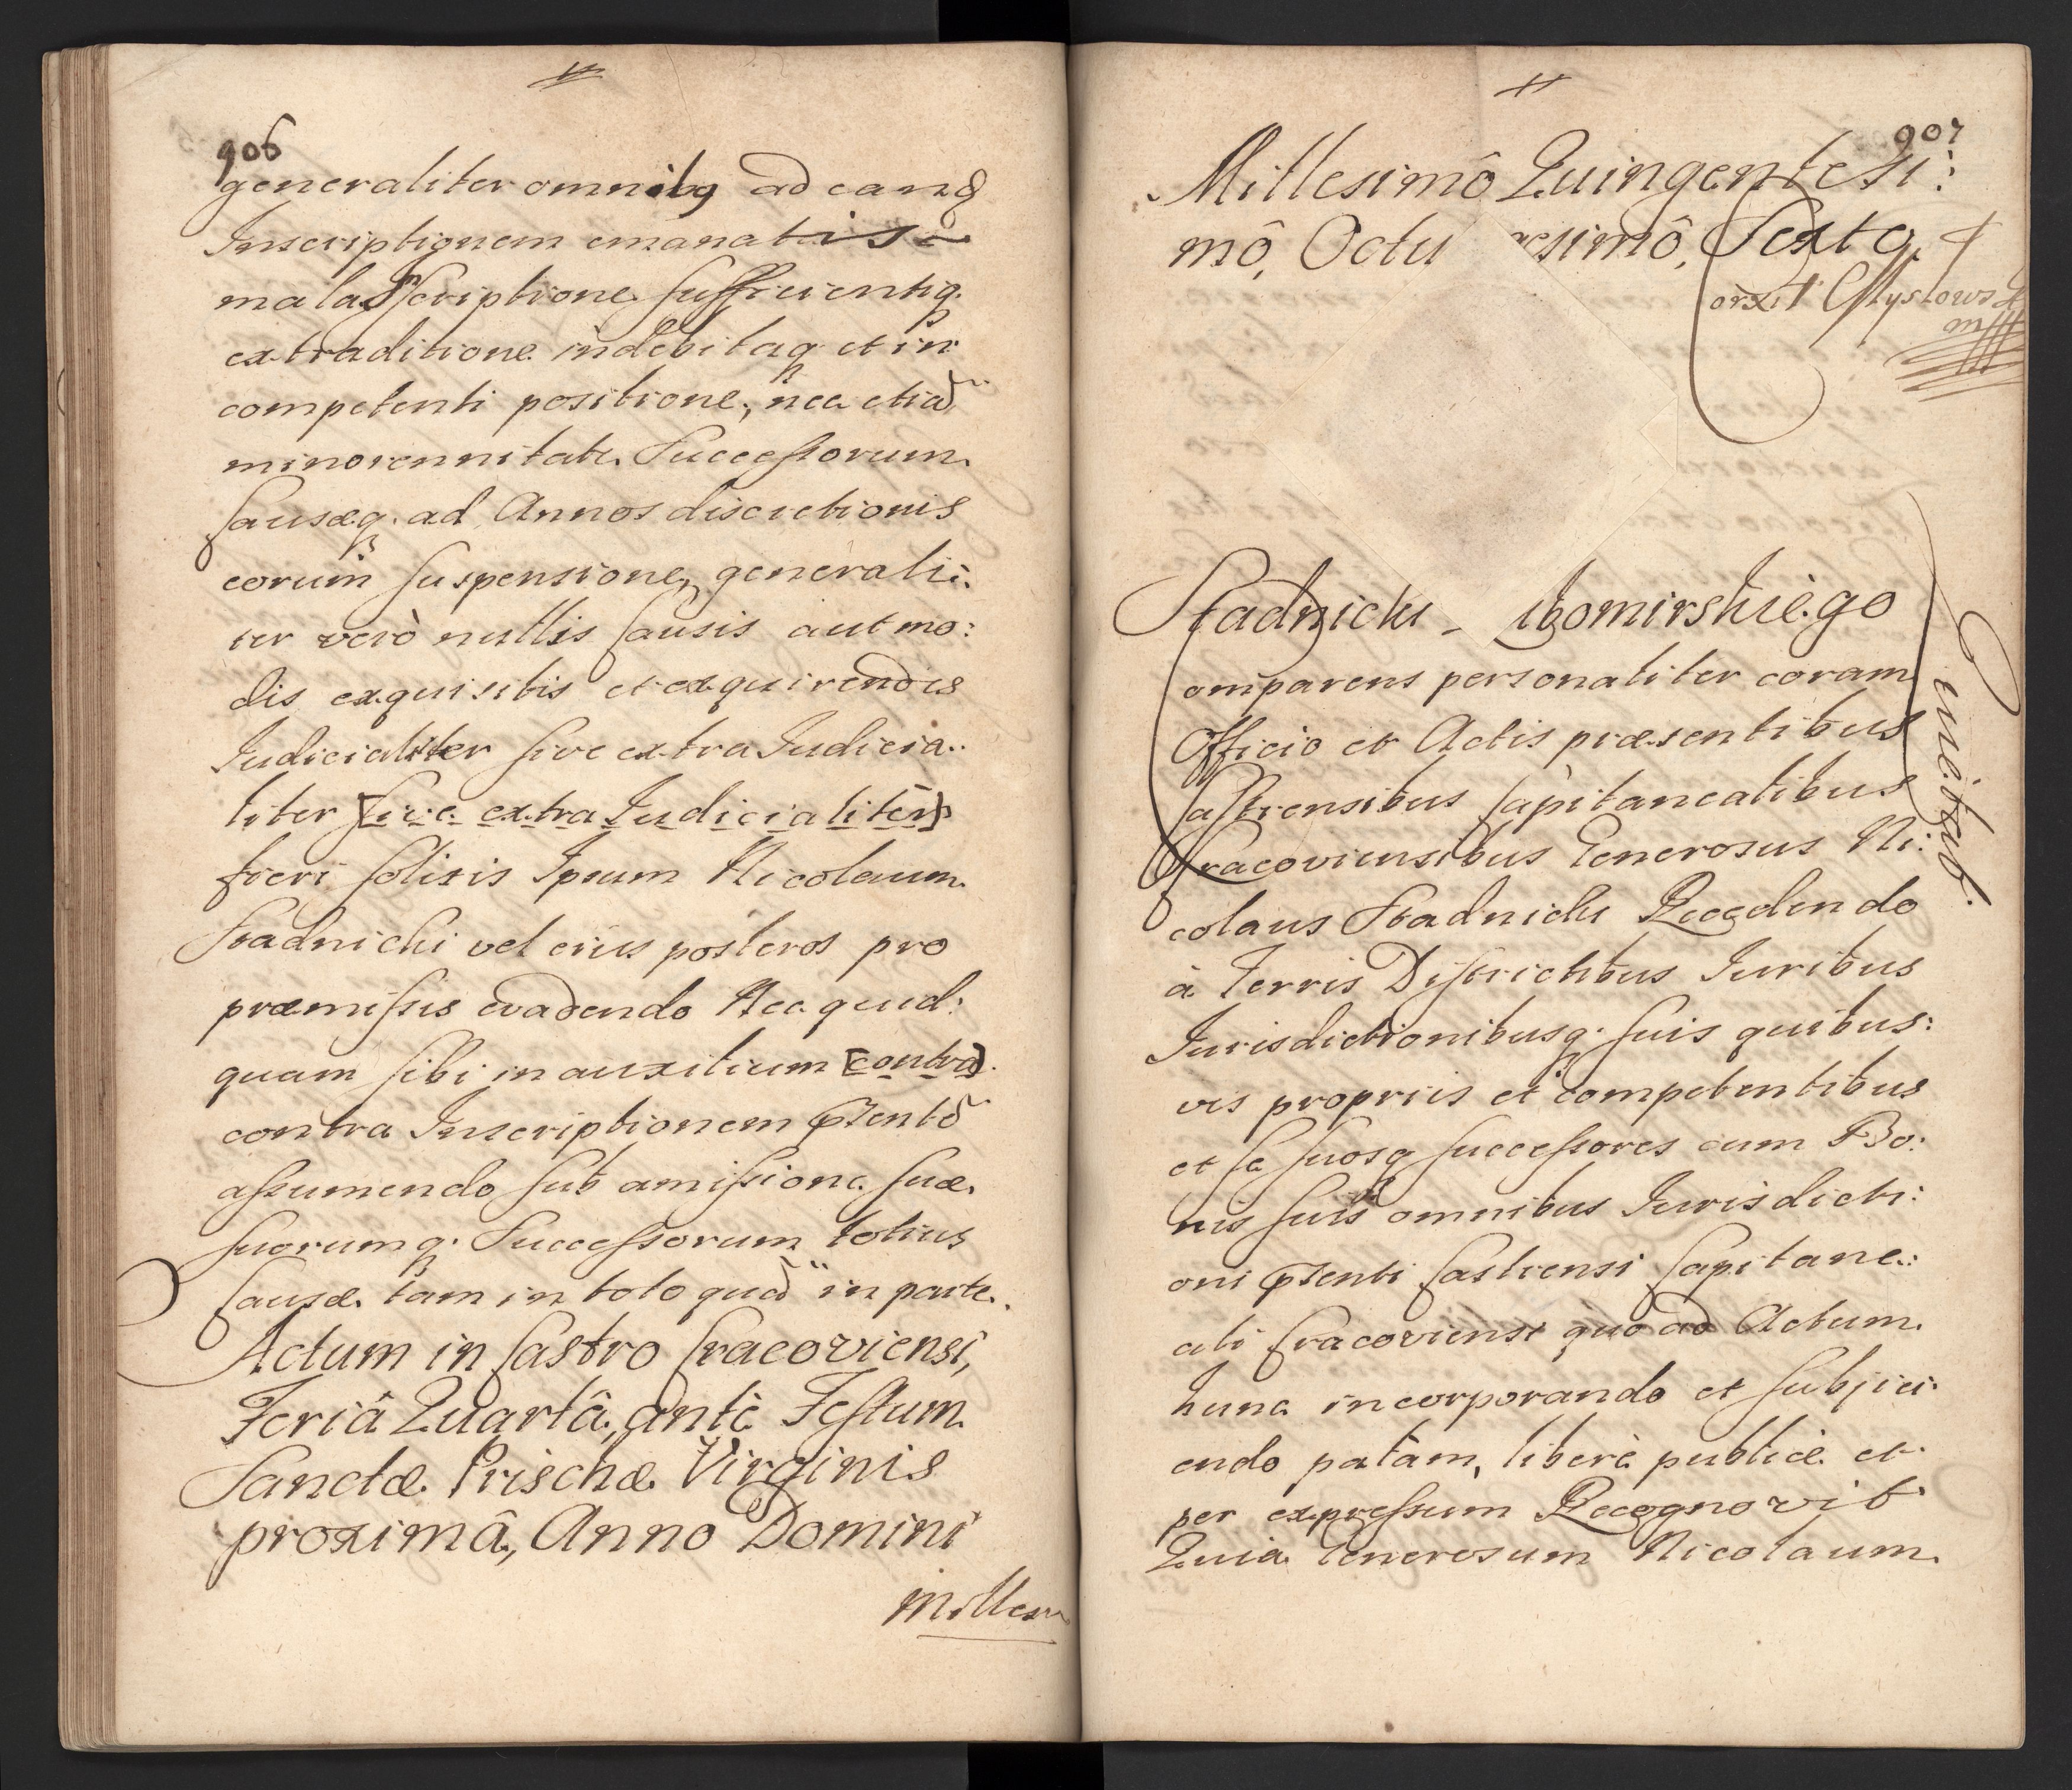 906
generaliter omnibq ad eand
Inscriptionem emanatis
mala Sscriptione sufficientiq.
extraditione indebitaq et in
competenti positione, nec etiā
minorennitate Successorum
Causæq. ad Annos discretionis
eorum suspensione, generali:
ter verò nullis Causis aut mo:
dis exquisitis et exquirendis
Judicialiter sive extra Judicia:
liter [sive extra Judicialiter]
fieri solitis Ipsum Nicolaum
Stadnicki vel eius posteros pro
præmissis evadendo Nec quid:
quam sibi in auxilium [contra]
contra Inscriptionem
assumendo sub amissione suæ
suorumq. Successorum totius
Causæ tam in toto quā in parte.
Actum in Castro Cracoviensi,
Feriâ Quartâ, antè Festum
Sanctæ Prischæ Virginis
proximâ, Anno Domini
Milles
907
Millesimô Quingentesi:
mô, Octu gesimô, Sexto.
orxit Mysłows
mp
Stadnicki - Lubomirskiego
Comparens personaliter coram
Officio et Actis præsentibus
Castrensibus Capitanealibus
Cracoviensibus Generosus Ni:
colaus Stadnicki Recedendo
à Terris Districtibus Juribus
Jurisdictionibusq. suis quibus:
vis propriis et competentibus
et se suosq successores cum Bo:
nis suis omnibus Jurisdicti:
oni pſenti Castrensi Capitane:
ali Cracoviensi quo ad Actum
hunc incorporando et subjici
endo palàm, liberè publicè et
per expressum Recognovit
Quia Generosum Nicolaum